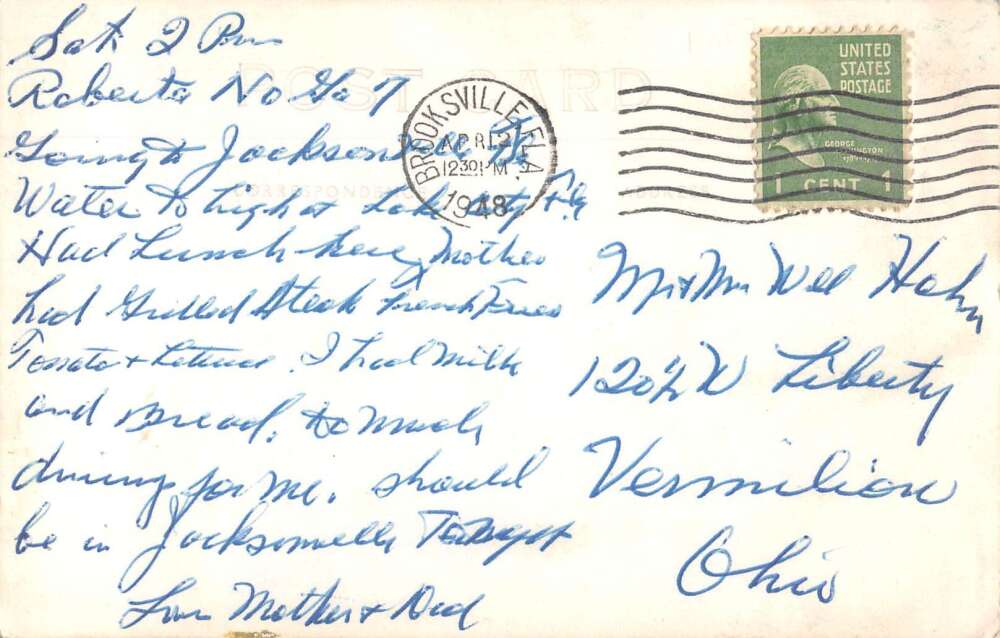 Sat. 2 Pm
POST CARD
Roberta No Ga 7
Going to Jacksonville
Water Tonight Lake City Fla
Had Lunch here, Mother
had Grilled Steak French Fries
Tomato + Lettuce. I had Milk
and Bread. to Much
driving for Me. should
be in Jacksonville Tonight
Love Mother + Dad
CORRESPONDENCE
ADDRESS
BROOKSVILLE, FLA.
APR 12
1230 PM
1948
UNITED
STATES
POSTAGE
GEORGE
WASHINGTON
1 CENT 1
Mr + Mrs Will Hahn
120½ W Liberty
Vermilion
Ohio